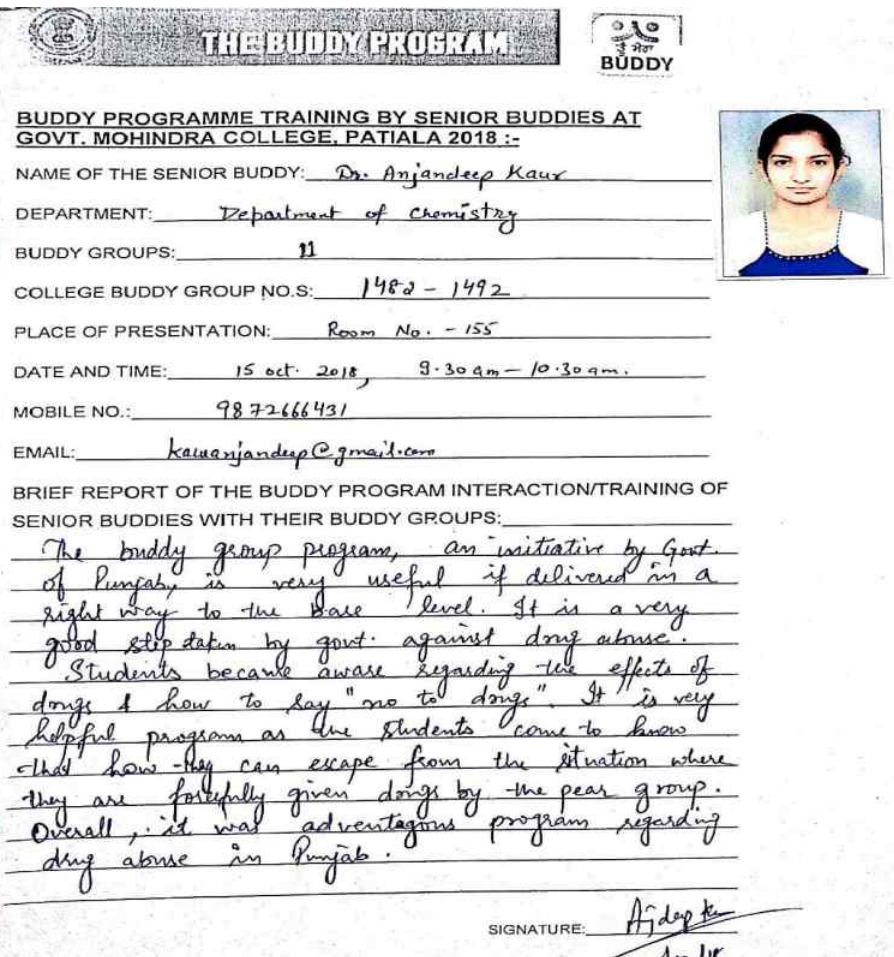 THE BUDDY PROGRAM
ਤੂੰ ਮੇਰਾ
BUDDY
BUDDY PROGRAMME TRAINING BY SENIOR BUDDIES AT
GOVT. MOHINDRA COLLEGE, PATIALA 2018 :-
NAME OF THE SENIOR BUDDY: Dr. Anjandeep Kaur
DEPARTMENT: Department of Chemistry
BUDDY GROUPS: 11
COLLEGE BUDDY GROUP NO.S: 1482 - 1492
PLACE OF PRESENTATION: Room No. - 155
DATE AND TIME: 15 oct. 2018, 9.30 am - 10.30 am.
MOBILE NO.: 9872666431
EMAIL: kauanjandeep@gmail.com
BRIEF REPORT OF THE BUDDY PROGRAM INTERACTION/TRAINING OF
SENIOR BUDDIES WITH THEIR BUDDY GROUPS:
The buddy group program, an initiative by Govt.
of Punjab, is very useful if delivered in a
right way to the base level. It is a very
good step taken by govt. against drug abuse.
Students became aware regarding the effects of
drugs & how to say "no to drugs". It is very
helpful program as the students come to know
that how they can escape from the situation where
they are forcefully given drugs by the pear group.
Overall, it was adventagous program regarding
drug abuse in Punjab.
SIGNATURE: